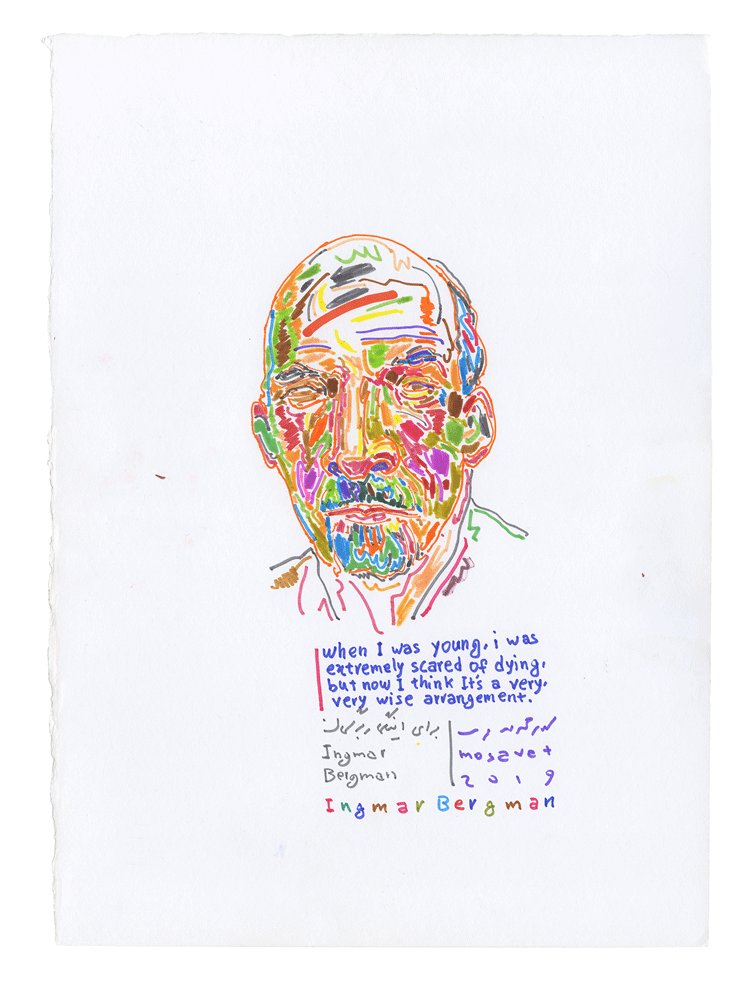 when I was young, i was
extremely scared of dying,
but now I think It's a very,
very wise arrangement.
برای
Ingmar
Bergman
mosavet
2019
Ingmar Bergman